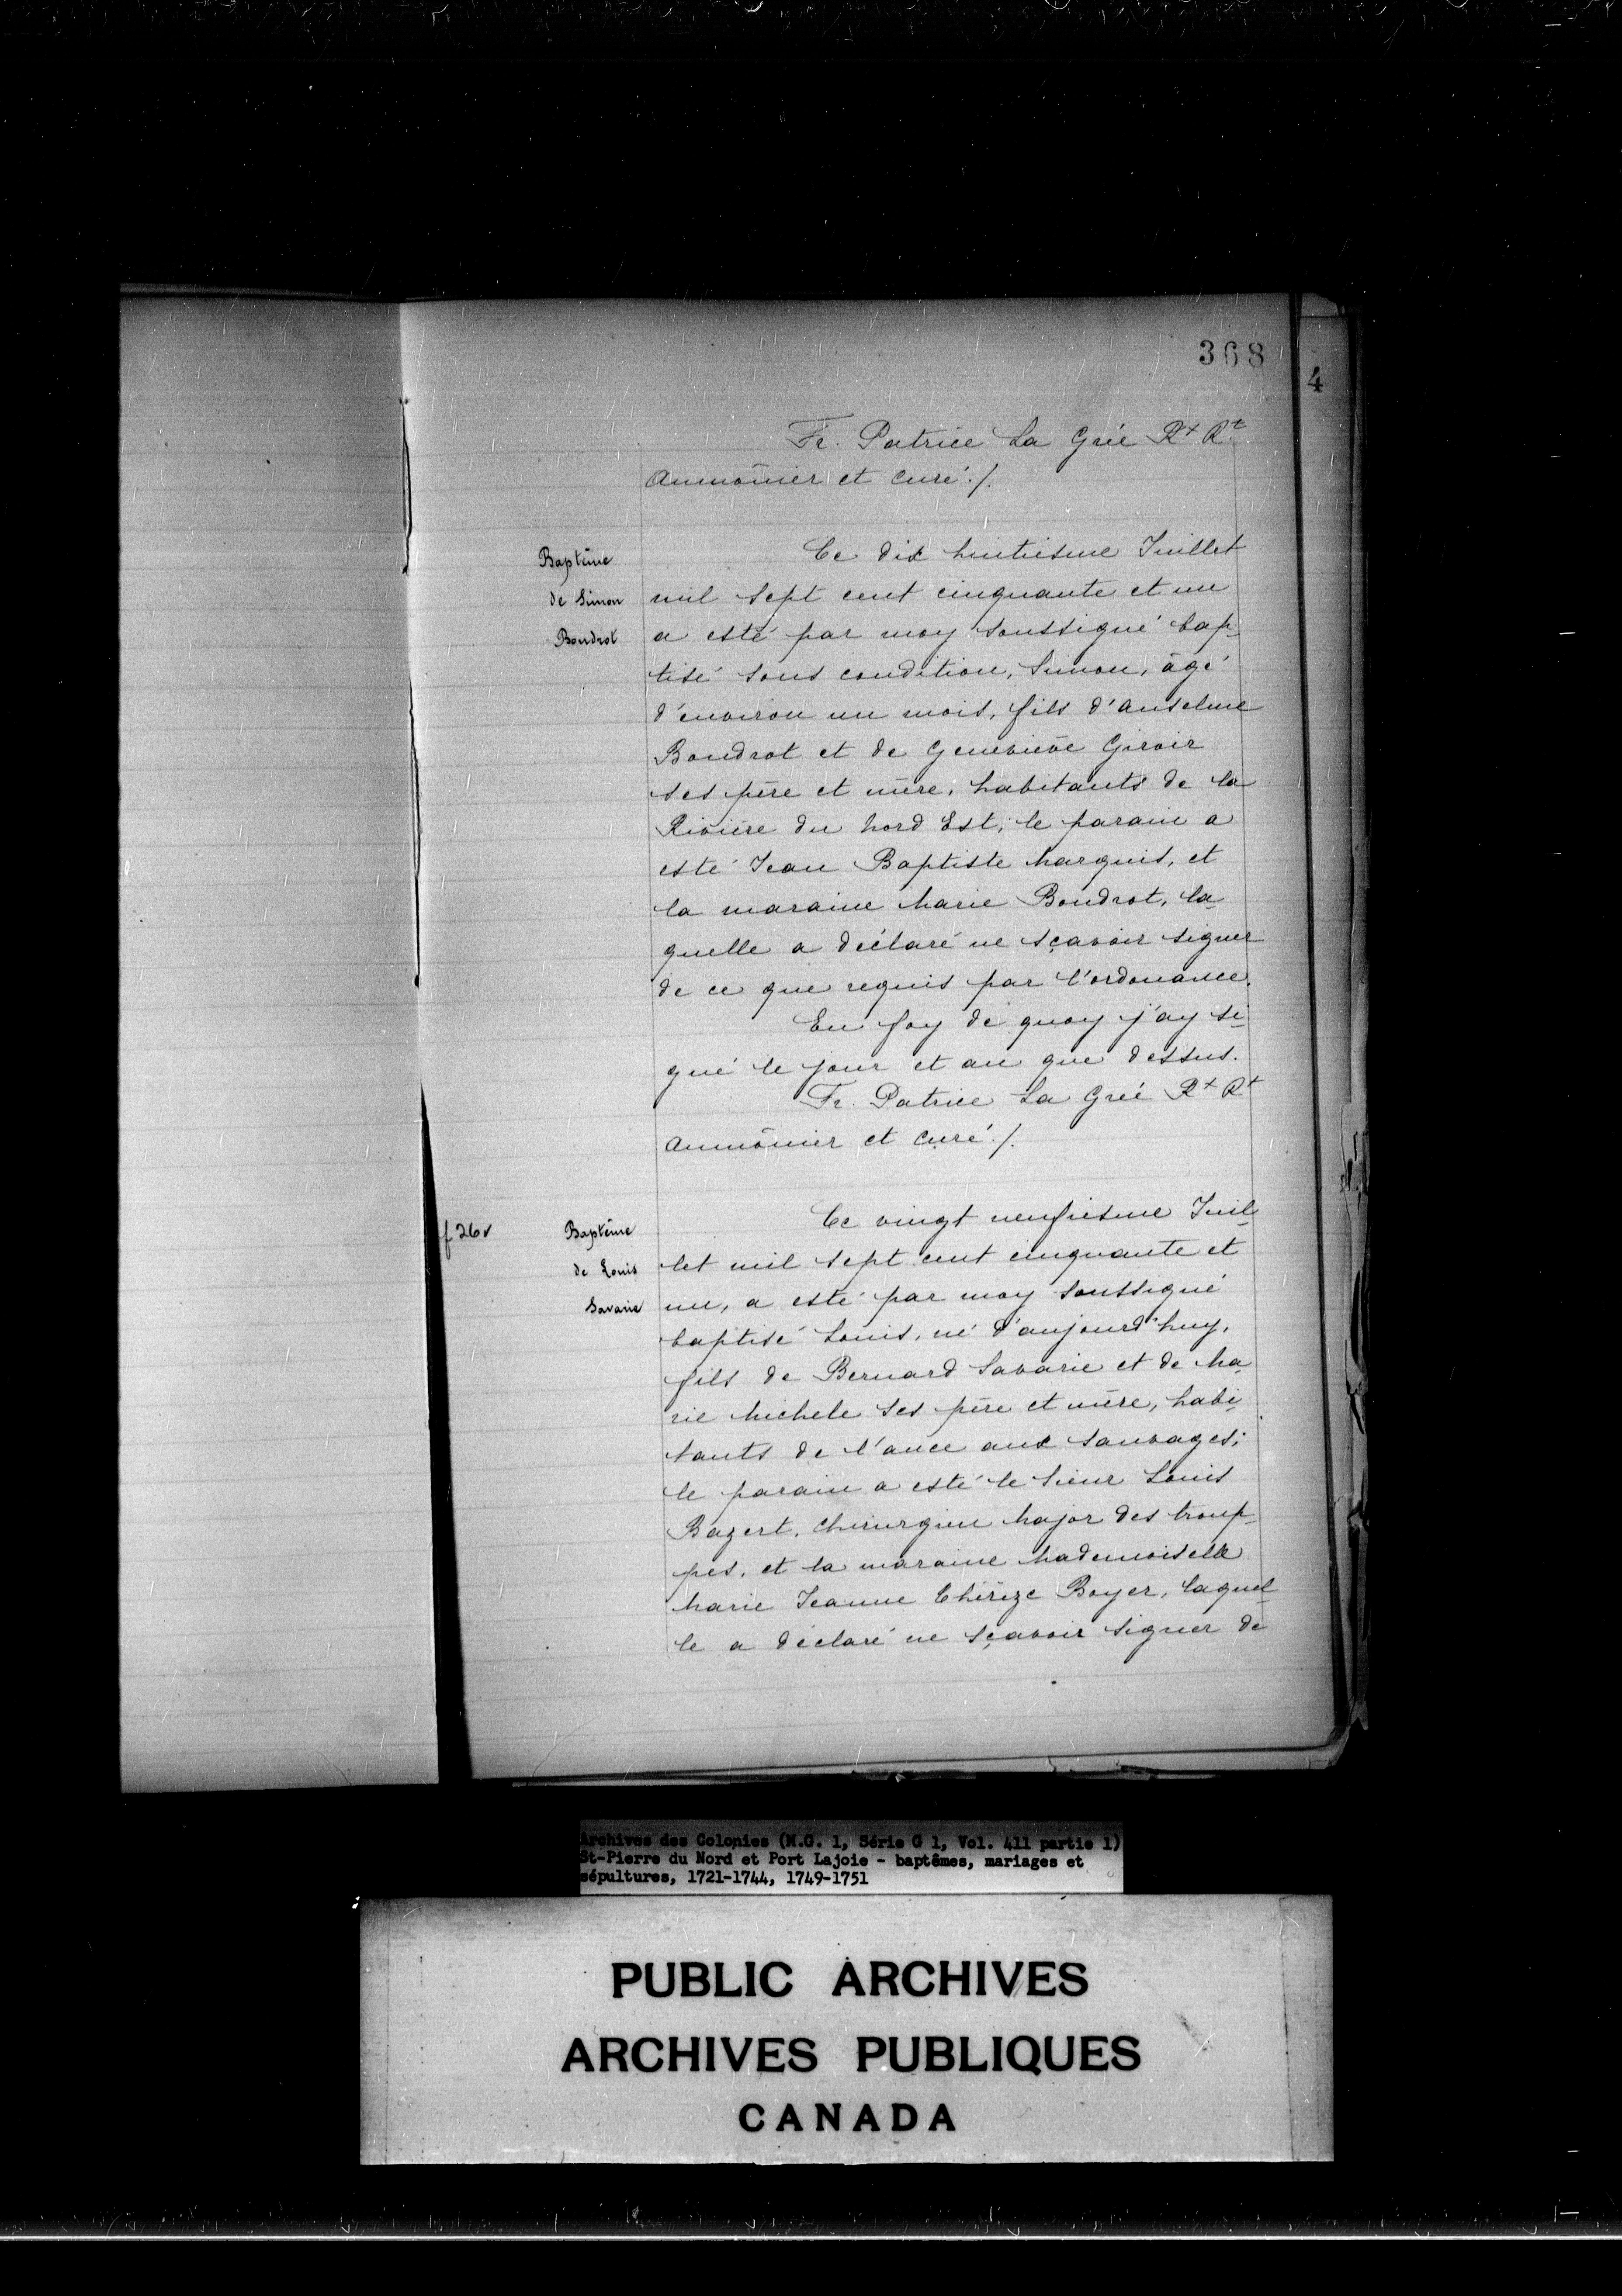 368
4
Fr. Patrice La Grée Rt Rt
Aumônier et Curé ./.
Baptême
de Simon
Boudrot
Ce dix huitiesme Juillet
mil sept cent cinquante et un
a esté par moy soussigné bap-
tisé sous condition, Simon, âgé
d'environ un mois, fils d'Anselme
Boudrot et de Geneviève Giroir
ses père et mère, habitants de la
Rivière du Nord Est; le parain a
esté Jean Baptiste Marquis, et
la maraine Marie Boudrot, la-
quelle a déclaré ne sçavoir signer
de ce que requis par l'ordonance.
En foy de quoy j'ay si-
gné le jour et an que dessus.
Fr. Patrice La Grée Rt Rt
Aumônier et Curé ./.
f 26v
Baptême
de Louis
Savarie
Ce vingt neufiesme Juil-
let mil sept cent cinquante et
un, a esté par moy soussigné
baptisé Louis, né d'aujourd'huy,
fils de Bernard Savarie et de Ma-
rie Michele ses père et mère, habi-
tants de l'ance aux Sauvages;
le parain a esté le Sieur Louis
Bazert, Chirurgien Major des troup-
pes, et la maraine Mademoiselle
Marie Jeanne Thérèze Boyer, laquel-
le a déclaré ne sçavoir signer de
Archives des Colonies (M.G. 1, Série G 1, Vol. 411 partie 1)
St-Pierre du Nord et Port Lajoie - baptêmes, mariages et
sépultures, 1721-1744, 1749-1751
PUBLIC ARCHIVES
ARCHIVES PUBLIQUES
CANADA